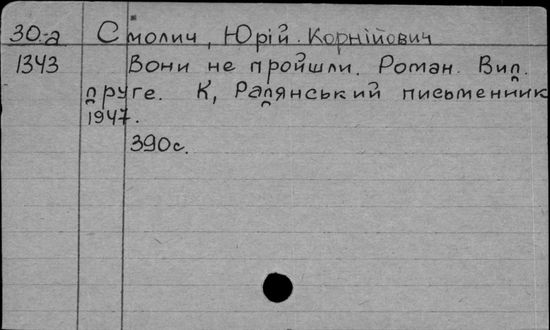 30-а Смолич, Юрій Корнійович
1343 Вони не пройшли. Роман. Вид.
друге. К, Радянський письменник
1947.
390с.